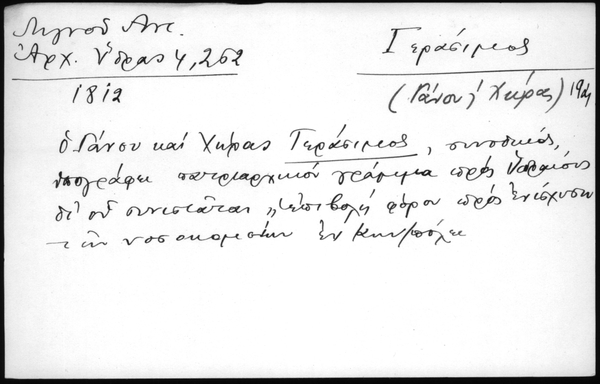 Λιγνοῦ Ἀντ.
Ἀρχ. Ὕδρας 4, 252
1812
Γεράσιμος
(Γάνου & Χώρας) 19ος
ὁ Γάνου καὶ Χώρας Γεράσιμος, συνοδικός,
ὑπογράφει πατριαρχικόν γράμμα πρός Ὑδραίους
δι' οὗ συνιστᾶται ἡ ἐπιβολή φόρου πρός ἐνίσχυσιν
τῶν νοσοκομείων ἐν Κων/πόλει